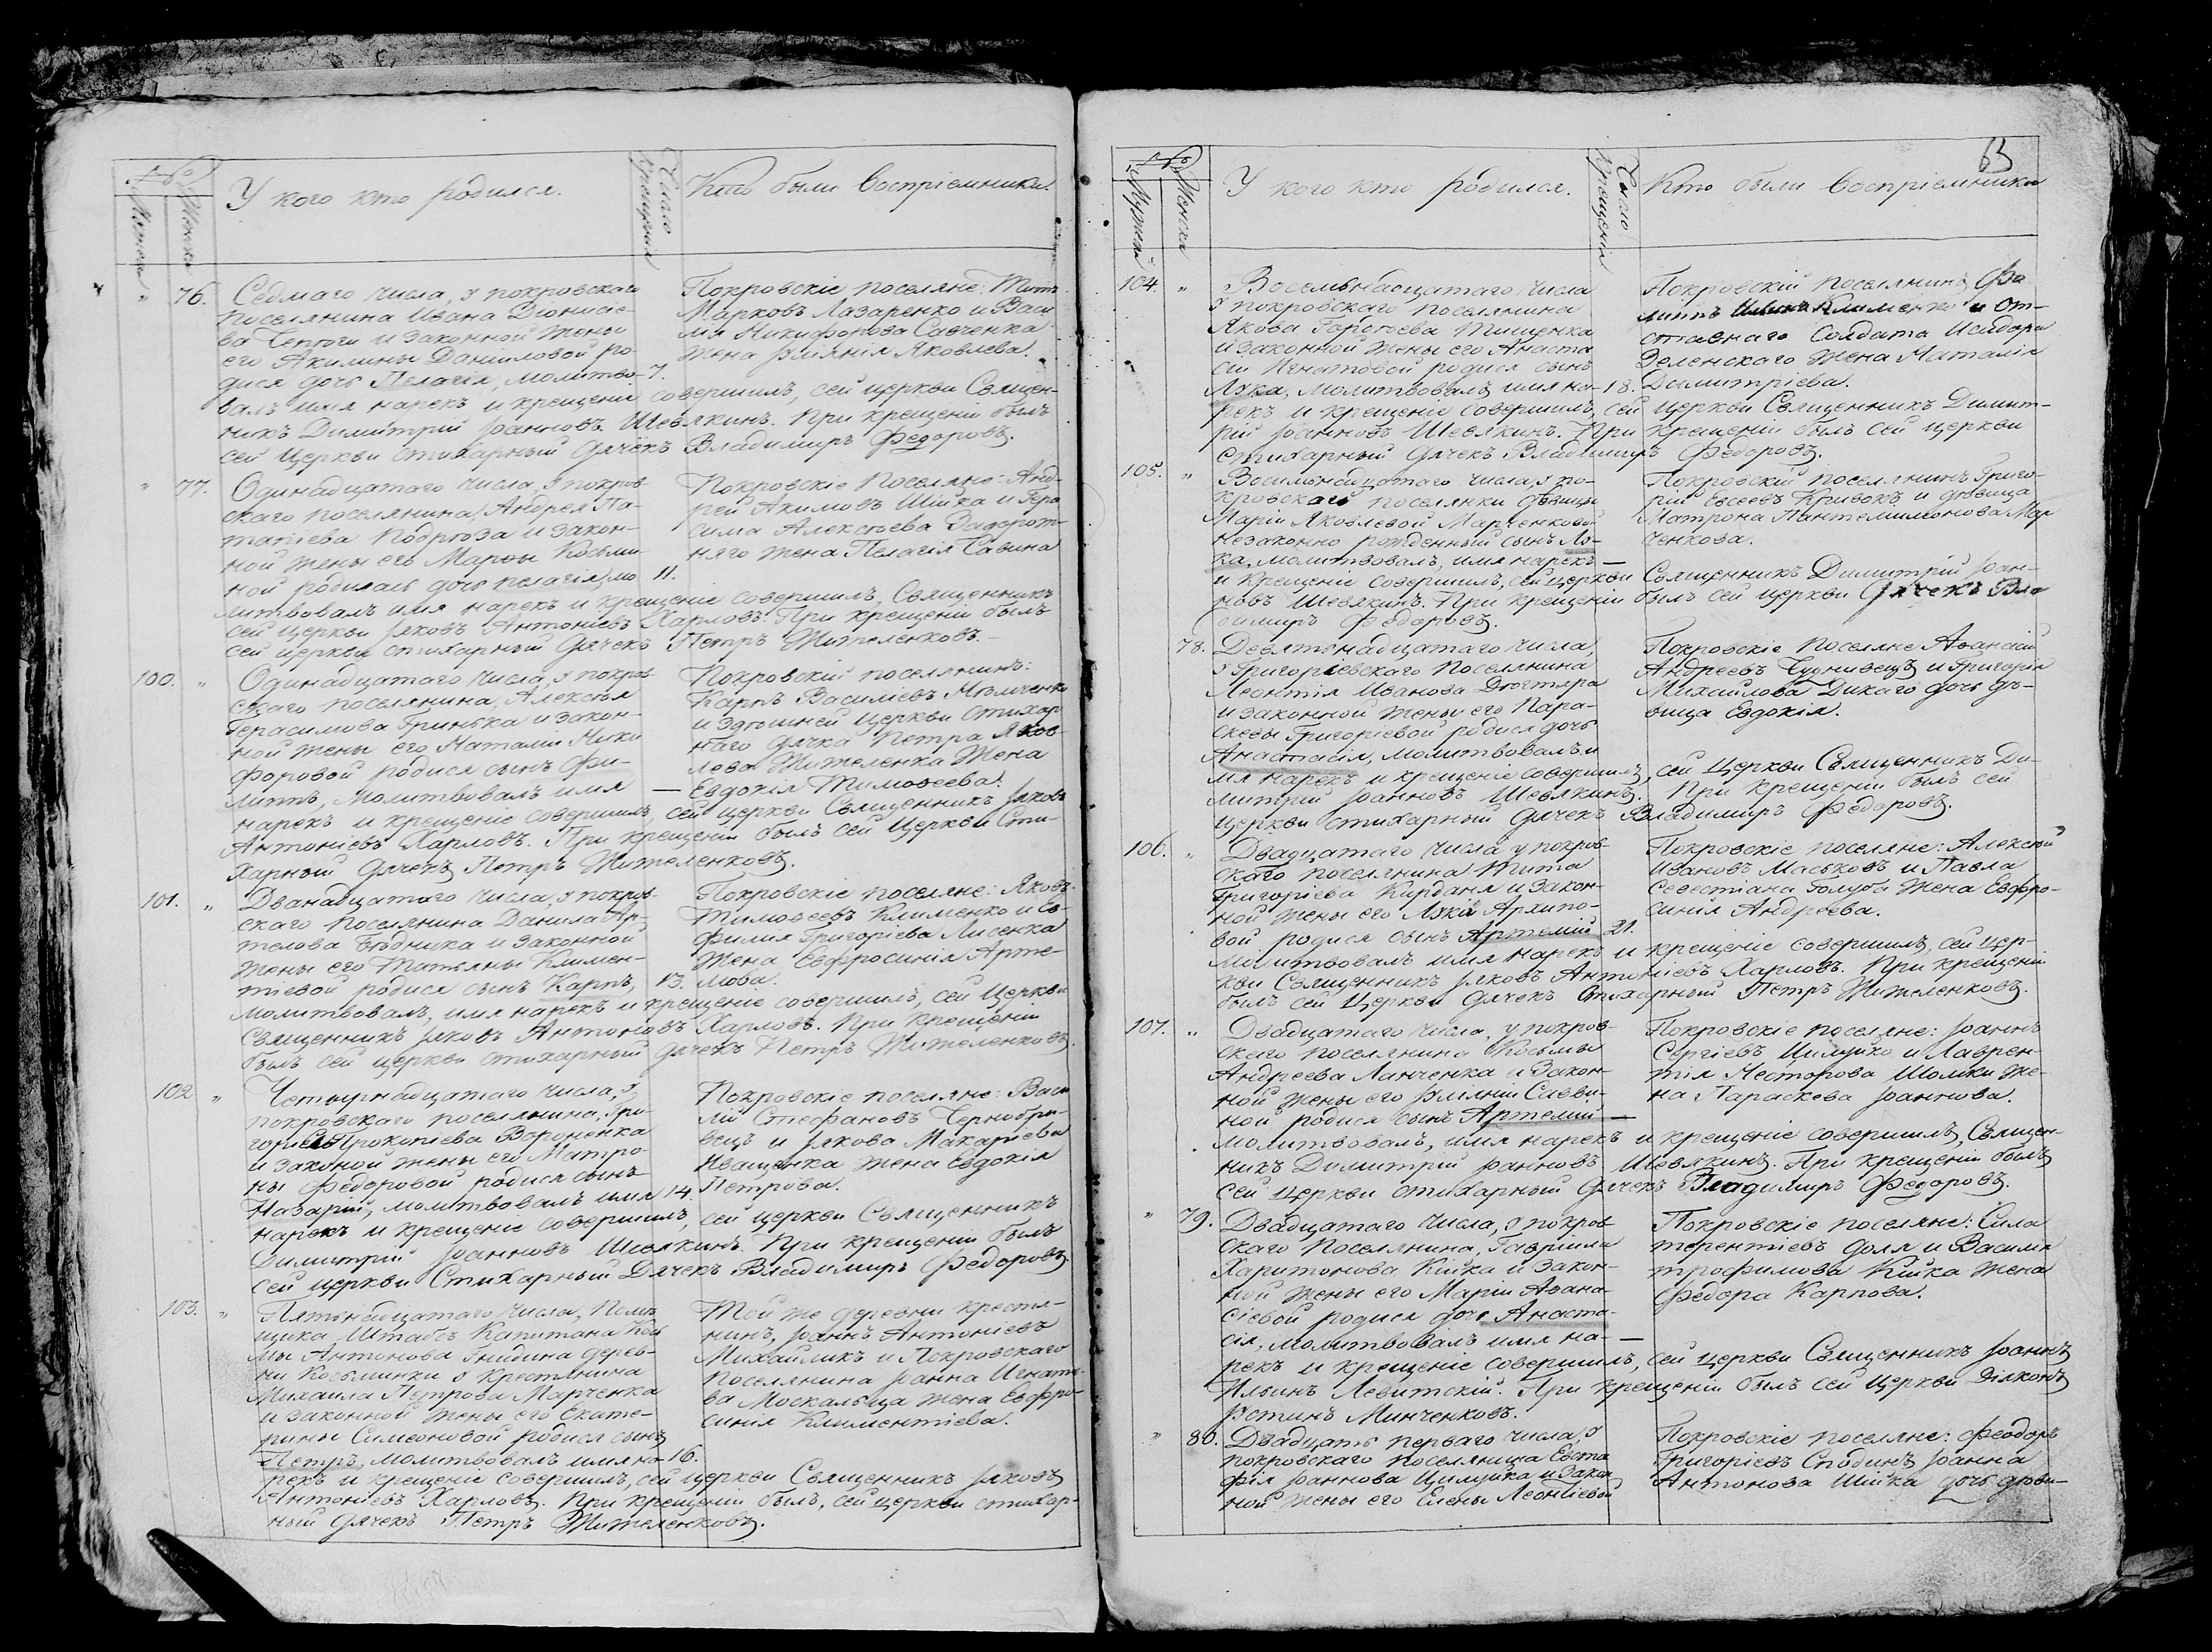 №
Мужеска
Женска
У кого кто родился.
Число Крещенія
Кто были Воспріемники.
" 76.
Седмаго числа, у покровскаго
поселянина Ивана Діонисіе-
ва Чепоги и законной жены
его Акилины Даниловой ро-
дися дочь Пелагія, молитво- 7.
валъ имя нарекъ и крещеніе совершилъ, сей церкви Священ-
никъ Димитрій Іоанновъ Шевякинъ. При крещеніи былъ
сей Церкви стихарный Дячекъ Владимиръ Федоровъ.
Покровскіе поселяне: Титъ
Марковъ Лазаренко и Васи
лія Никифорова Савченка
жена Іуліянія Яковлева.
" 77.
Одинадцатаго числа, у покров
скаго поселянина, Андрея Па-
тапіева Подргоза и закон-
ной жены его Марфы Косьми-
ной родилась дочь Пелагія, мо 11.
литвовалъ имя нарекъ и крещеніе совершилъ, Священникъ
сей церкви Іяковъ Антоніевъ Харловъ. При крещеніи былъ
сей церкви стихарный Дячекъ Петръ Жителенковъ.
Покровскіе Поселяне: Анд-
рей Акимовъ Шійка и Гера
сима Алексѣева Задорож-
няго жена Пелагія Савина
100. "
Одинадцатаго числа, у покров
скаго поселянина, Алексѣя
Герасимова Гринька и закон-
ной жены его Наталіи Ники
форовой родися сынъ Фи-
липпъ, молитвовалъ имя —
нарекъ и крещеніе совершилъ, сей церкви Священникъ Іяковъ
Антоніевъ Харловъ. При крещеніи былъ сей Церкви Сти-
харный Дячекъ Петръ Жителенковъ.
Покровскій поселянинъ:
Карпъ Василіевъ Мѣльченко
и здѣшней Церкви Стихар
наго дячка Петра Яков-
лева Жителенка жена
Евдокія Тимоѳеева.
101. "
Дванадцатаго числа, у покров-
скаго Поселянина Данила Ар-
темова Бѣдника и законной
жены его Татьяны Климен-
тіевой родися сынъ Карпъ, 13.
молитвовалъ, имя нарекъ и крещеніе совершилъ, сей Церкви
Священникъ Іяковъ Антоновъ Харловъ. При крещеніи
былъ сей церкви стихарный дячекъ Петръ Жителенковъ.
Покровскіе поселяне: Яковъ
Тимоѳеевъ Клименко и Ев-
филія Григоріева Лисенка
жена Евфросинія Арте-
мова.
102 "
Четырнадцатаго числа, у
покровскаго поселянина, Гри-
горія Прокопіева Вороненка
и законой жены его Матро-
ны Федоровой родися сынъ
Назарій, молитвовалъ имя 14.
нарекъ и крещеніе совершилъ, сей церкви Священникъ
Димитрій Іоанновъ Шевякинъ. При крещеніи былъ
сей церкви Стихарный Дячекъ Владимиръ Федоровъ.
Покровскіе поселяне: Васи
лій Стефановъ Чернобри-
вецъ и Іякова Макаріева
Иващенка жена Евдокія
Петрова.
103. "
Пятьнадцатаго числа, Помѣ
щика Штабсъ Капитана Кось
мы Антонова Гнидина дерев-
ни Косьминки у крестянина
Михаила Петрова Марченка
и законной жены его Екате-
рины Симеоновой родися сынъ
Петръ, молитвовалъ имя на- 16.
рекъ и крещеніе совершилъ, сей церкви Священникъ Іяковъ
Антоніевъ Харловъ. При крещеніи былъ, сей церкви стихар-
ный Дячекъ Петръ Жителенковъ.
Той же деревни крестя-
нинъ, Іоаннъ Антоніевъ
Михайликъ и Покровскаго
поселянина Іоанна Игнать
ва Москальца жена Евфро-
синія Климентіева.
63
№
Мужеска
Женска
У кого кто родился.
Число Крещенія
Кто были Воспріемники
104. "
Восемьнадцатаго числа
у покровскаго поселянина
Якова Тищенка
и законной жены его Анаста
сіи Игнатовой родися сынъ
Лука, молитвовалъ имя на- 18.
рекъ и крещеніе совершилъ, сей церкви Священникъ Димит-
рій Іоанновъ Шевякинъ. При крещеніи былъ сей церкви
стихарный Дячекъ Владимиръ Федоровъ.
Покровскій поселянинъ Фи
липпъ Клименко и От-
ставнаго Солдата Исидора
Зеленскаго жена Наталія
Димитріева.
105. "
Восимьнадцатаго числа, у по-
кровскаго поселянки дѣвицы
Маріи Яковлевой Марченковой
незаконно рожденный сынъ Лу-
ка, молитвовалъ, имя нарекъ —
и крещеніе совершилъ, сей церкви Священникъ Димитрій Іоан-
новъ Шевякинъ. При крещеніи былъ сей церкви Дячекъ Вла
димиръ Федоровъ.
Покровскій поселянинъ Григо-
рій Евсеевъ Кривокъ и дѣвица
Матрона Пантелимонова Мар
ченкова.
78.
Девятьнадцатаго числа,
у Григоріевскаго Поселянина
Леонтія Иванова Дюгтяра
и законной жены его Пара-
скевы Григоріевой родися дочь
Анастасія, молитвовалъ и
мя нарекъ и крещеніе совершилъ, сей Церкви Священникъ Ди-
митрій Іоанновъ Шевякинъ. При крещеніи былъ сей
Церкви стихарный Дячекъ Владимиръ Федоровъ.
Покровскіе поселяне Аѳанасій
Андреевъ Чудновецъ и Григорія
Михайлова Дикаго дочь дѣ-
вица Евдокія.
106. "
Двадцатаго числа у покров-
скаго поселянина Тита
Григоріева Кирданя и закон-
ной жены его Лукіи Архипо-
вой родися сынъ Артемій 21.
молитвовалъ имя нарекъ и крещеніе совершилъ, сей Цер-
кви Священникъ Іяковъ Антоніевъ Харловъ. При крещеніи
былъ сей Церкви Дячекъ Стихарный Петръ Жителенковъ.
Покровскіе поселяне: Алексѣй
Ивановъ Маськовъ и Павла
Севестіана Голуба жена Евфро-
синія Андреева.
107. "
Двадцатаго числа, у покров-
скаго поселянина Косьмы
Андреева Ланченка и закон-
ной жены его Іуліяніи Савви-
ной родися сынъ Артемій —
молитвовалъ, имя нарекъ и крещеніе совершилъ, Священ-
никъ Димитрій Іоанновъ Шевякинъ. При крещеніи былъ
сей церкви стихарный Дячекъ Владимиръ Федоровъ.
Покровскіе поселяне: Іоаннъ
Сергіевъ Цилуйко и Лаврен-
тія Несторова Шомки же-
на Параскева Іоаннова.
" 79.
Двадцатаго числа, у покров
скаго Поселянина, Гавріила
Харитонова Кійка и закон-
ной жены его Маріи Аѳана-
сіевой родися дочь Анаста-
сія, молитвовалъ имя на- —
рекъ и крещеніе совершилъ, сей церкви Священникъ Іоаннъ
Ильинъ Левитскій. При крещеніи былъ сей Церкви Діяконъ
Іустинъ Минченковъ.
Покровскіе поселяне: Сила
терентіевъ Доля и Василія
трофимова Кійка жена
Федора Карпова.
" 80.
Двадцать перваго числа, у
покровскаго поселянина Евста
фія Іоаннова Цилуйка и закон
ной жены его Елены Леонтіевой
Покровскіе поселяне: Феодоръ
Григоріевъ Спудинъ Іоанна
Антонова Шійка дочь дѣви-